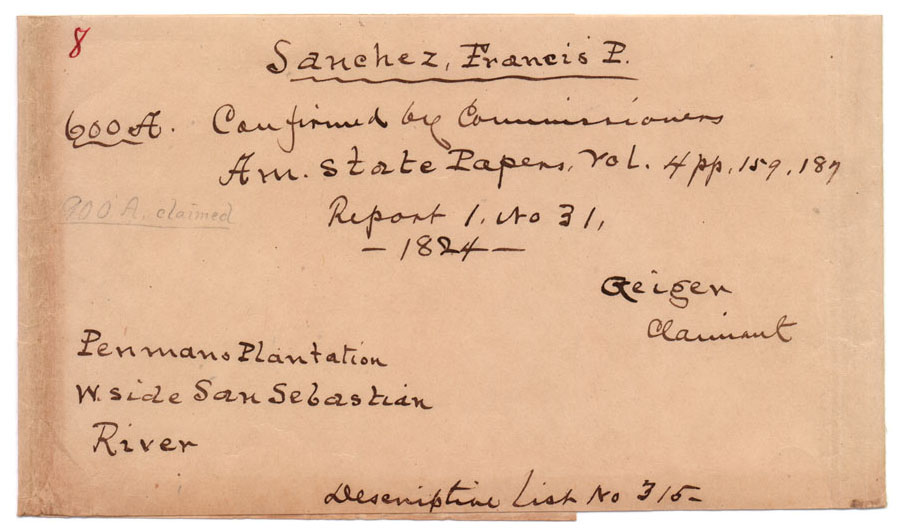 8
Sanchez, Francis P.
600 A. Confirmed by Commissioners
Am. State Papers, Vol. 4 pp. 159, 187
900 A. claimed
Report 1. No 31,
— 1824 —
Geiger
Claimant
Penmans Plantation
W. side San Sebastian
River
Descriptive List No 315—